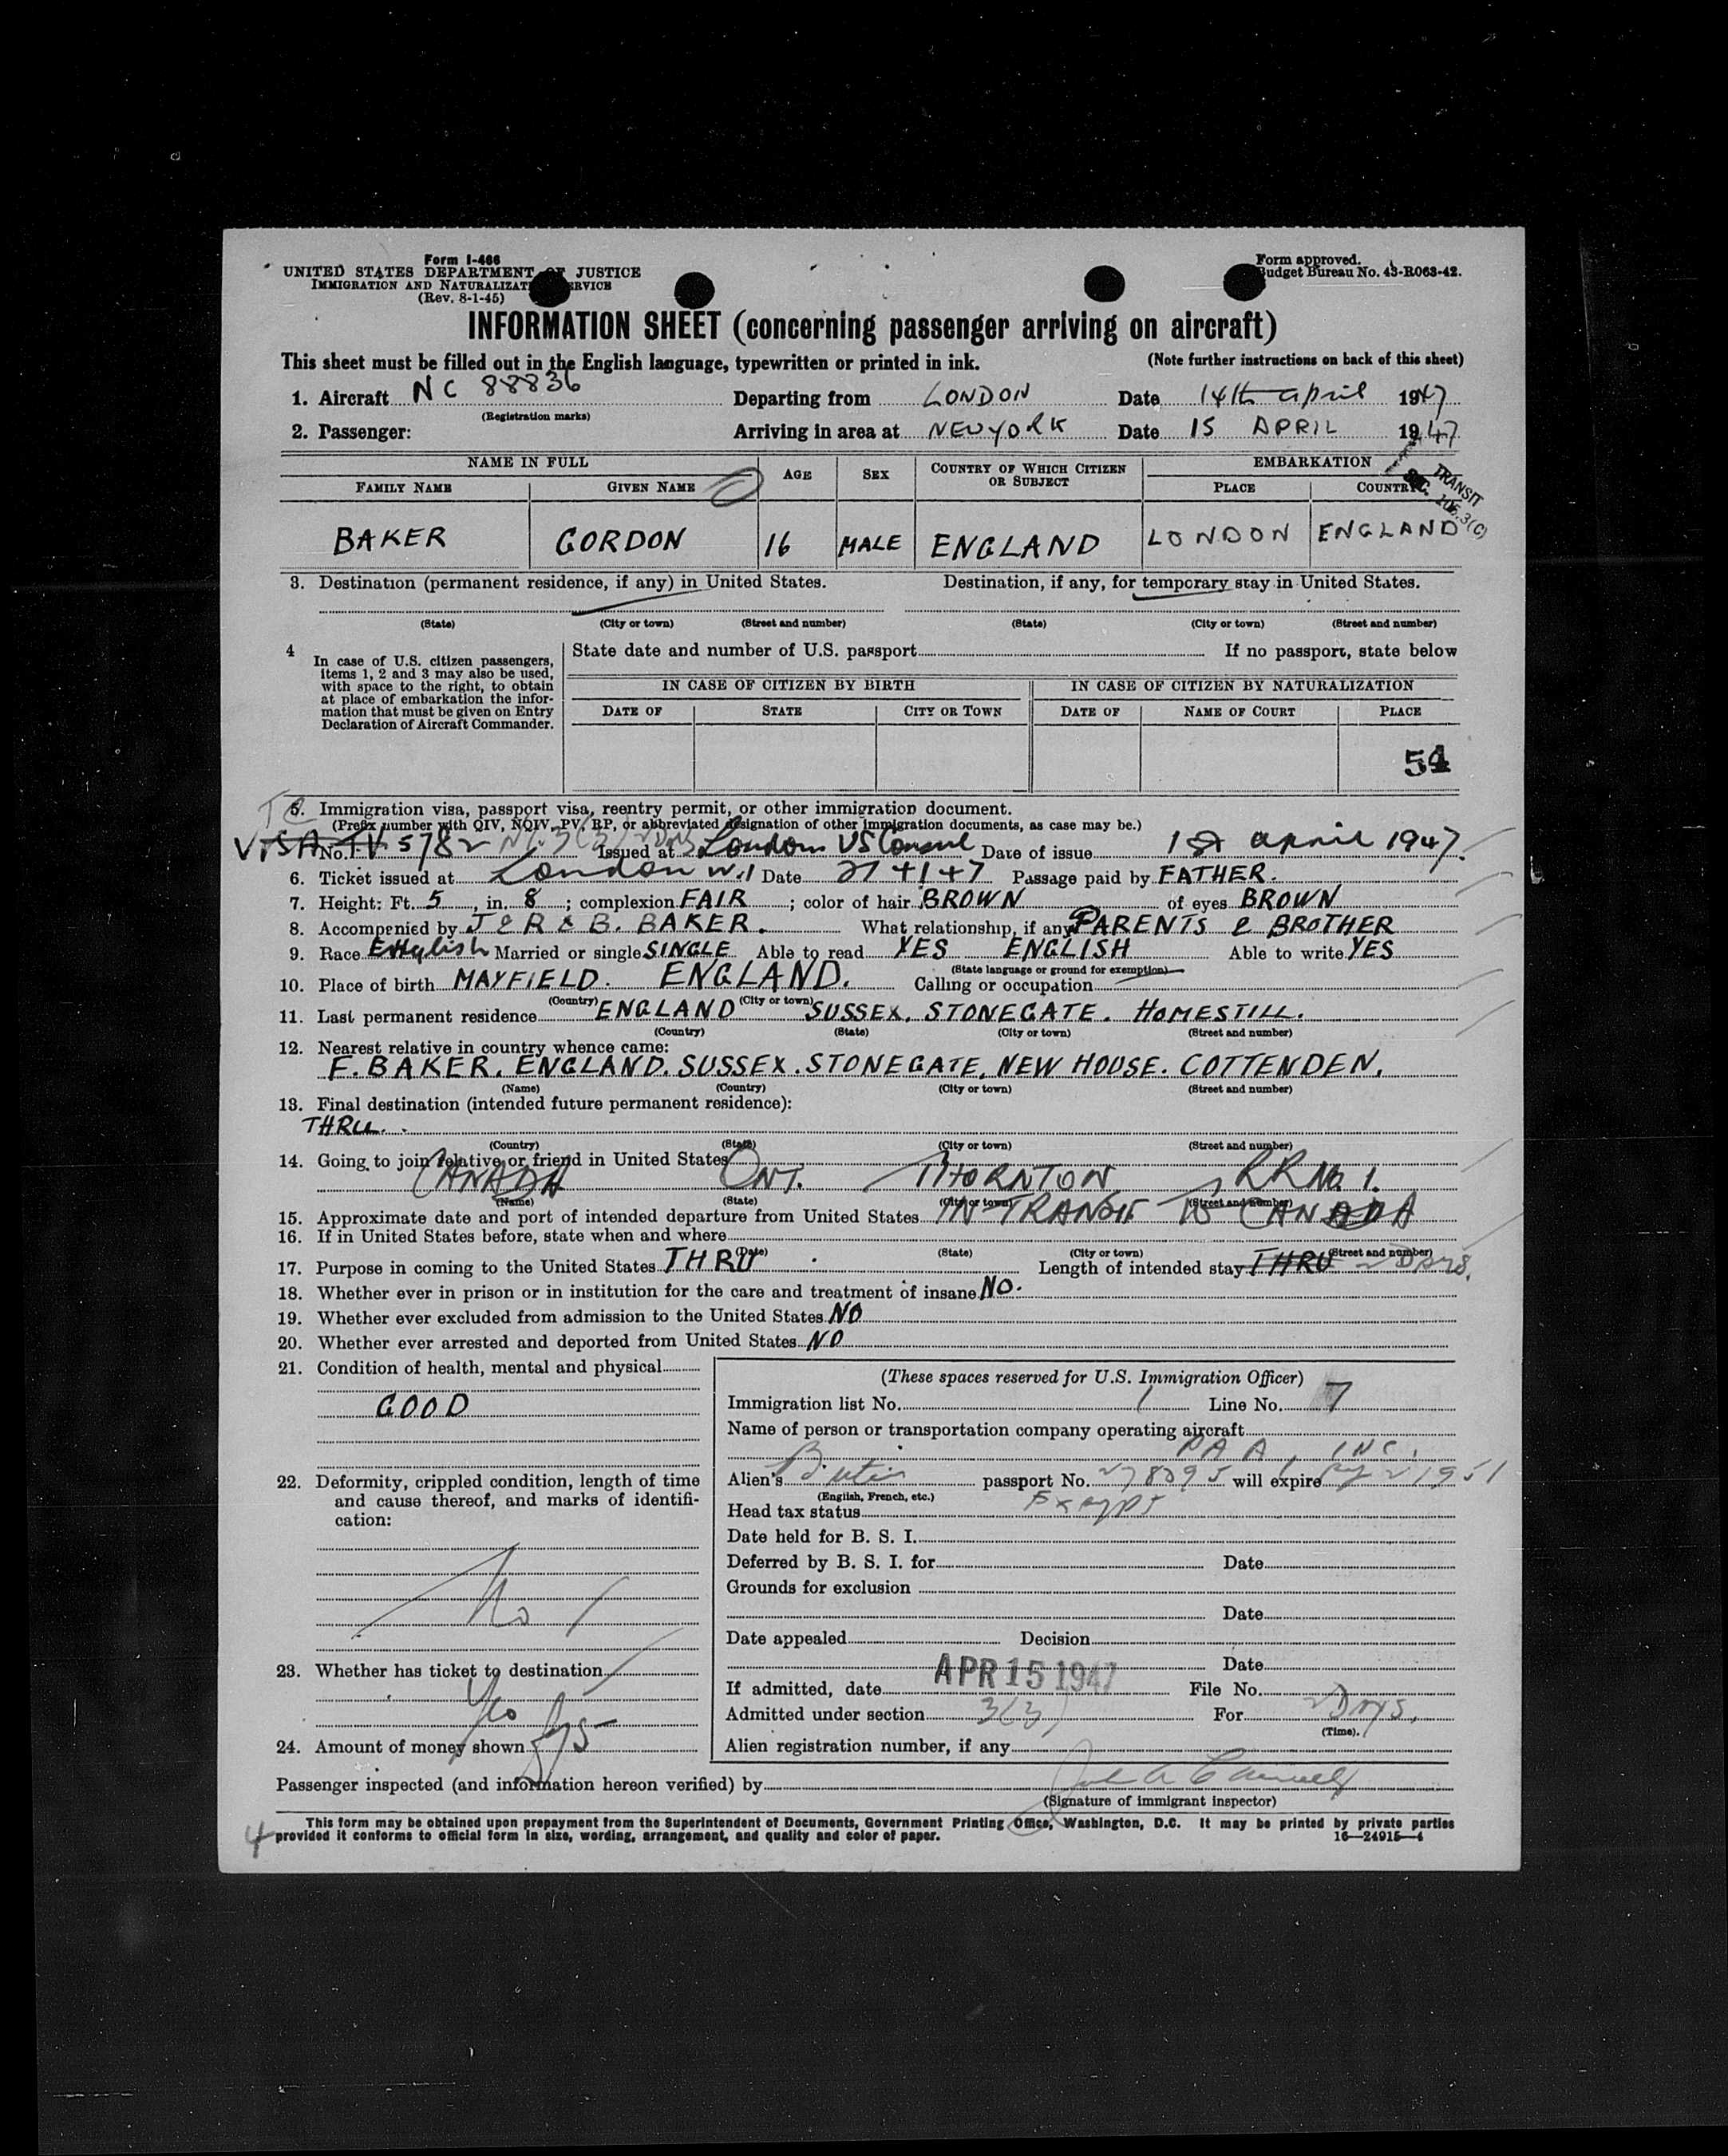 Form I-466
UNITED STATES DEPARTMENT OF JUSTICE
IMMIGRATION AND NATURALIZATION SERVICE
(Rev. 8-1-45)
Form approved.
Budget Bureau No. 43-R063-42.
INFORMATION SHEET (concerning passenger arriving on aircraft)
This sheet must be filled out in the English language, typewritten or printed in ink. (Note further instructions on back of this sheet)
1. Aircraft NC 88836 Departing from LONDON Date 14th April 1947
(Registration marks)
2. Passenger: Arriving in area at NEW YORK Date 15 APRIL 1947
NAME IN FULL AGE SEX COUNTRY OF WHICH CITIZEN OR SUBJECT EMBARKATION
FAMILY NAME GIVEN NAME PLACE COUNTRY
TRANSIT
SEC. 105.3(C)
BAKER GORDON 16 MALE ENGLAND LONDON ENGLAND
3. Destination (permanent residence, if any) in United States. Destination, if any, for temporary stay in United States.
(State) (City or town) (Street and number) (State) (City or town) (Street and number)
4 In case of U.S. citizen passengers, items 1, 2 and 3 may also be used, with space to the right, to obtain at place of embarkation the information that must be given on Entry Declaration of Aircraft Commander.
State date and number of U.S. passport If no passport, state below
IN CASE OF CITIZEN BY BIRTH IN CASE OF CITIZEN BY NATURALIZATION
DATE OF STATE CITY OR TOWN DATE OF NAME OF COURT PLACE
54
5. Immigration visa, passport visa, reentry permit, or other immigration document.
(Prefix number with QIV, NQIV, PV, RP, or abbreviated designation of other immigration documents, as case may be.)
VISA No. TV 5782 Issued at London US Consul Date of issue 1st April 1947.
6. Ticket issued at London W.1 Date 2/4/47 Passage paid by FATHER.
7. Height: Ft. 5, in. 8; complexion FAIR; color of hair BROWN of eyes BROWN
8. Accompanied by J & R & B. BAKER. What relationship, if any PARENTS & BROTHER
9. Race English Married or single SINGLE Able to read YES ENGLISH Able to write YES
(State language or ground for exemption)
10. Place of birth MAYFIELD. ENGLAND. Calling or occupation
(Country) (City or town)
11. Last permanent residence ENGLAND SUSSEX. STONEGATE. HOMESTILL.
(Country) (State) (City or town) (Street and number)
12. Nearest relative in country whence came:
F. BAKER. ENGLAND. SUSSEX. STONEGATE. NEW HOUSE. COTTENDEN.
(Name) (Country) (City or town) (Street and number)
13. Final destination (intended future permanent residence):
THRU.
(Country) (State) (City or town) (Street and number)
14. Going to join relative or friend in United States
CANADA ONT. THORNTON RR No. 1.
(Name) (State) (City or town) (Street and number)
15. Approximate date and port of intended departure from United States IN TRANSIT TO CANADA
16. If in United States before, state when and where
(Date) (State) (City or town) (Street and number)
17. Purpose in coming to the United States THRU Length of intended stay THRU 2 DAYS.
18. Whether ever in prison or in institution for the care and treatment of insane NO.
19. Whether ever excluded from admission to the United States NO
20. Whether ever arrested and deported from United States NO
21. Condition of health, mental and physical
GOOD
22. Deformity, crippled condition, length of time and cause thereof, and marks of identification:
No
23. Whether has ticket to destination
24. Amount of money shown
(These spaces reserved for U.S. Immigration Officer)
Immigration list No. 1 Line No. 7
Name of person or transportation company operating aircraft
PAA, INC.
Alien's passport No. 278095 will expire 1951
(English, French, etc.)
Head tax status Exempt
Date held for B. S. I.
Deferred by B. S. I. for Date
Grounds for exclusion
Date
Date appealed Decision
Date
If admitted, date APR 15 1947 File No.
Admitted under section 3(3) For 2 Days.
(Time).
Alien registration number, if any
Passenger inspected (and information hereon verified) by
(Signature of immigrant inspector)
This form may be obtained upon prepayment from the Superintendent of Documents, Government Printing Office, Washington, D.C. It may be printed by private parties
provided it conforms to official form in size, wording, arrangement, and quality and color of paper. 16—24915-4
4